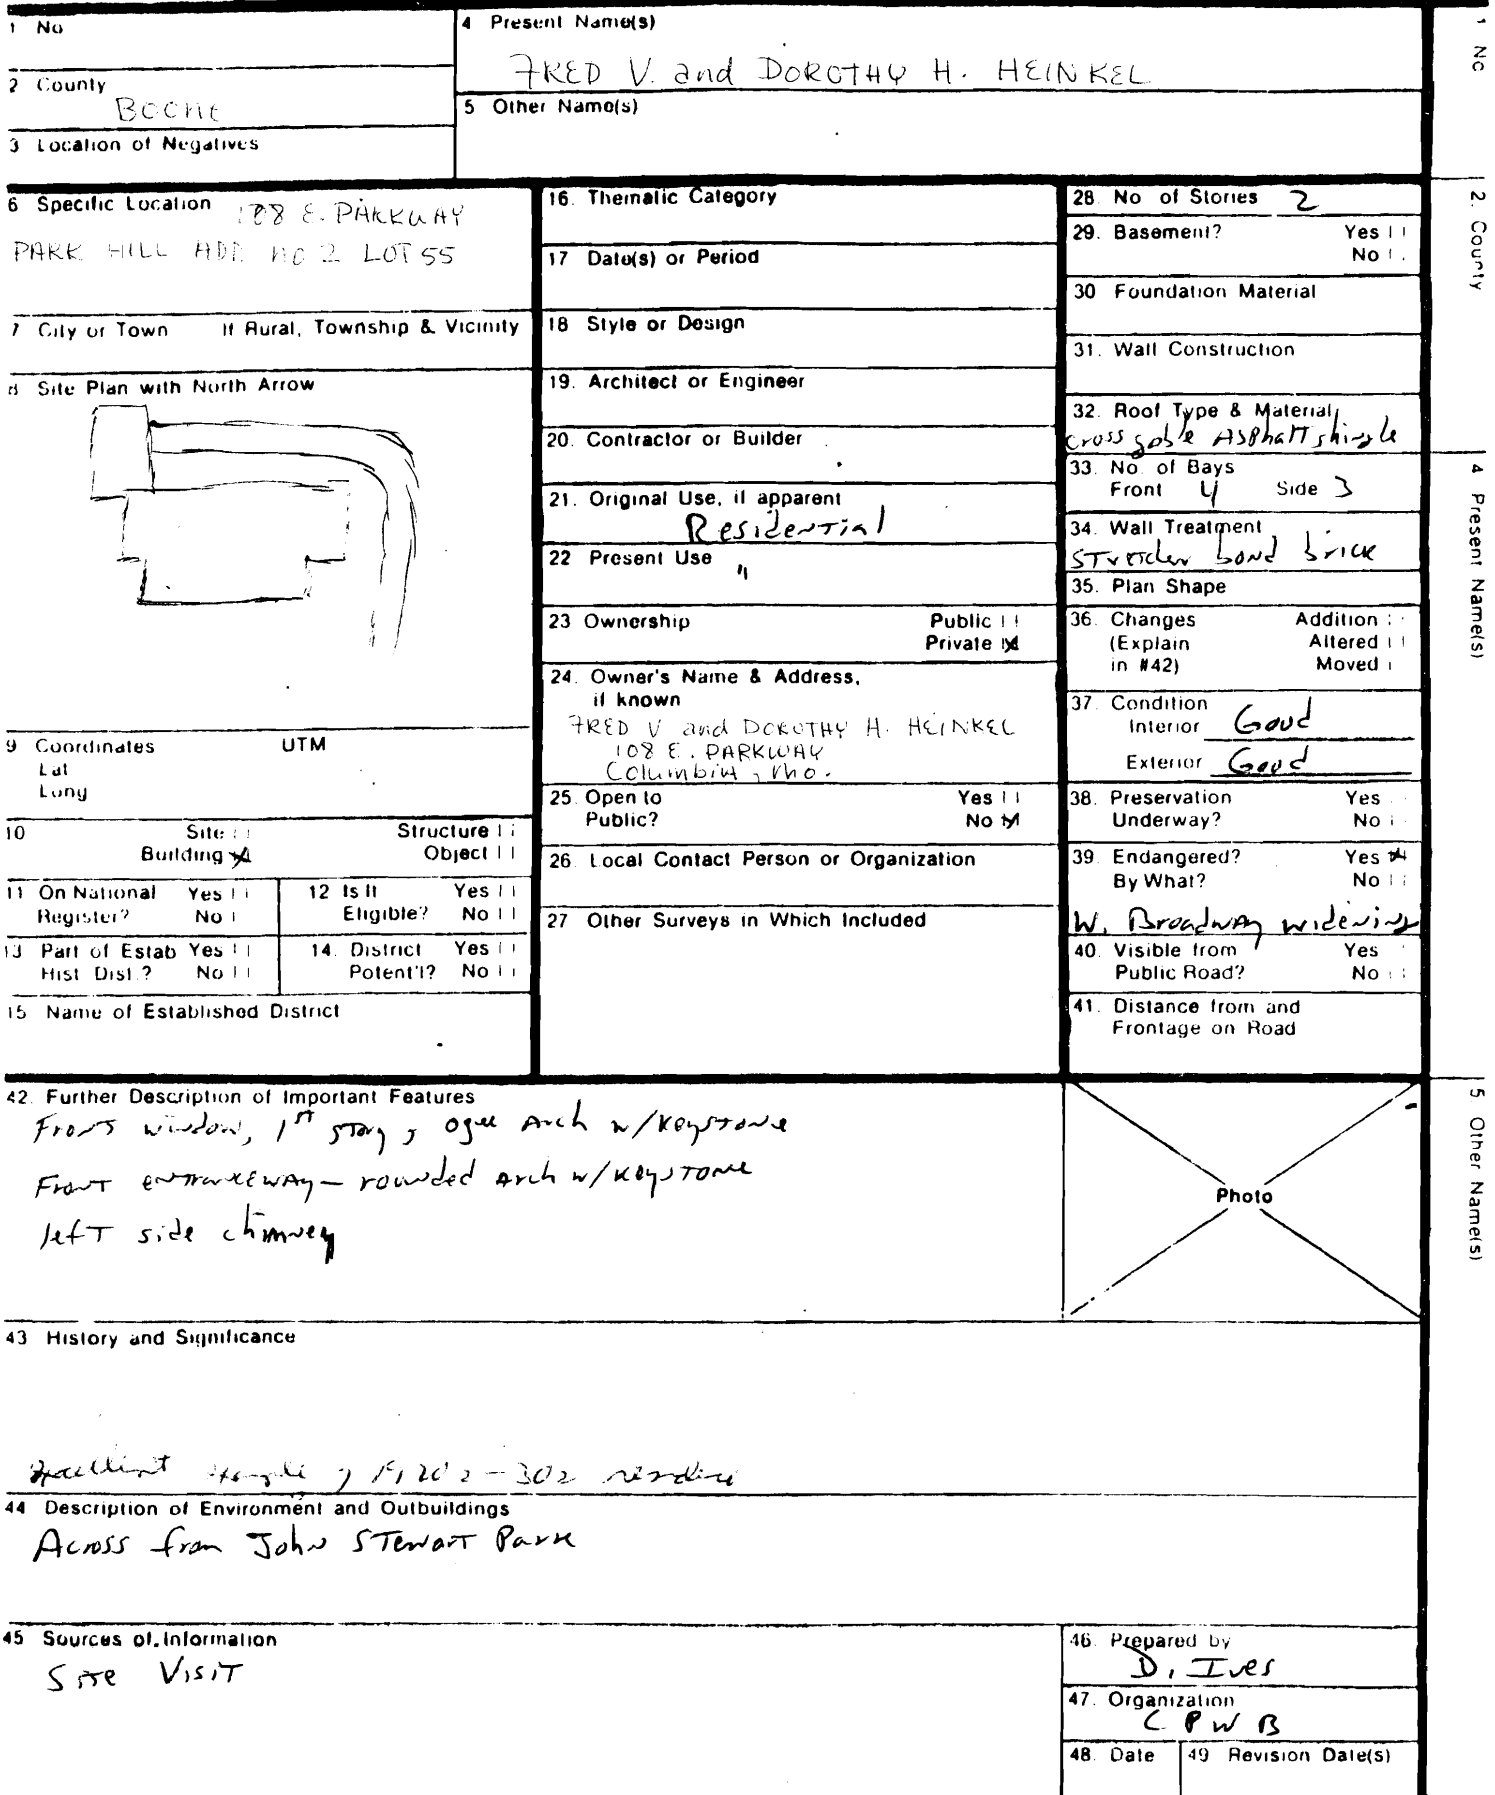 1 No
4 Present Name(s)
FRED V. and DOROTHY H. HEINKEL
2 County
Boone
5 Other Name(s)
3 Location of Negatives
6 Specific Location
108 E. PARKWAY
PARK HILL ADD. NO 2 LOT 55
7 City or Town If Rural, Township & Vicinity
8 Site Plan with North Arrow
9 Coordinates UTM
Lat
Long
10 Site
Structure
Building
Object
11 On National Register? Yes No
12 Is It Eligible? Yes No
13 Part of Estab Hist Dist.? Yes No
14. District Potent'l? Yes No
15 Name of Established District
16. Thematic Category
17 Date(s) or Period
18 Style or Design
19. Architect or Engineer
20. Contractor or Builder
21. Original Use, if apparent
Residential
22 Present Use "
23 Ownership Public
Private
24. Owner's Name & Address,
if known
FRED V and DOROTHY H. HEINKEL
108 E. PARKWAY
Columbia, Mo.
25. Open to Yes
Public? No
26. Local Contact Person or Organization
27 Other Surveys in Which Included
28. No of Stories 2
29. Basement? Yes
No
30 Foundation Material
31. Wall Construction
32. Roof Type & Material
cross gable Asphalt shingle
33. No. of Bays
Front 4 Side 3
34. Wall Treatment
Stretcher bond brick
35. Plan Shape
36. Changes Addition
(Explain Altered
in #42) Moved
37. Condition
Interior Good
Exterior Good
38. Preservation Yes
Underway? No
39. Endangered? Yes
By What? No
W. Broadway widening
40. Visible from Yes
Public Road? No
41. Distance from and
Frontage on Road
42. Further Description of Important Features
Front window, 1st story, ogee Arch w/keystone
Front entranceway – rounded arch w/keystone
left side chimney
Photo
43 History and Significance
Excellent example of 1920s-30s residence
44 Description of Environment and Outbuildings
Across from John Stewart Park
45 Sources of Information
Site Visit
46. Prepared by
D. Ives
47. Organization
C P W B
48. Date
49 Revision Date(s)
1 No
2. County
4 Present Name(s)
5 Other Name(s)